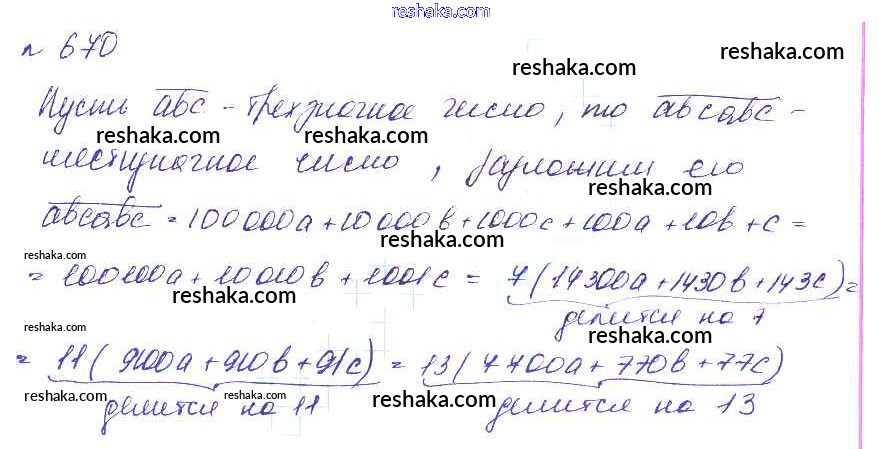 reshaka.com
№ 670
reshaka.com
Пусть abc - трехзначное число, то abcabc -
reshaka.com reshaka.com reshaka.com
шестизначное число, разложим его
reshaka.com
abcabc = 100000a + 10000b + 1000c + 100a + 10b + c =
reshaka.com reshaka.com reshaka.com
= 100100a + 10010b + 1001c = 7(14300a + 1430b + 143c) =
reshaka.com reshaka.com
делится на 7
reshaka.com reshaka.com
= 11(9100a + 910b + 91c) = 13(7700a + 770b + 77c)
reshaka.com reshaka.com reshaka.com
делится на 11 делится на 13